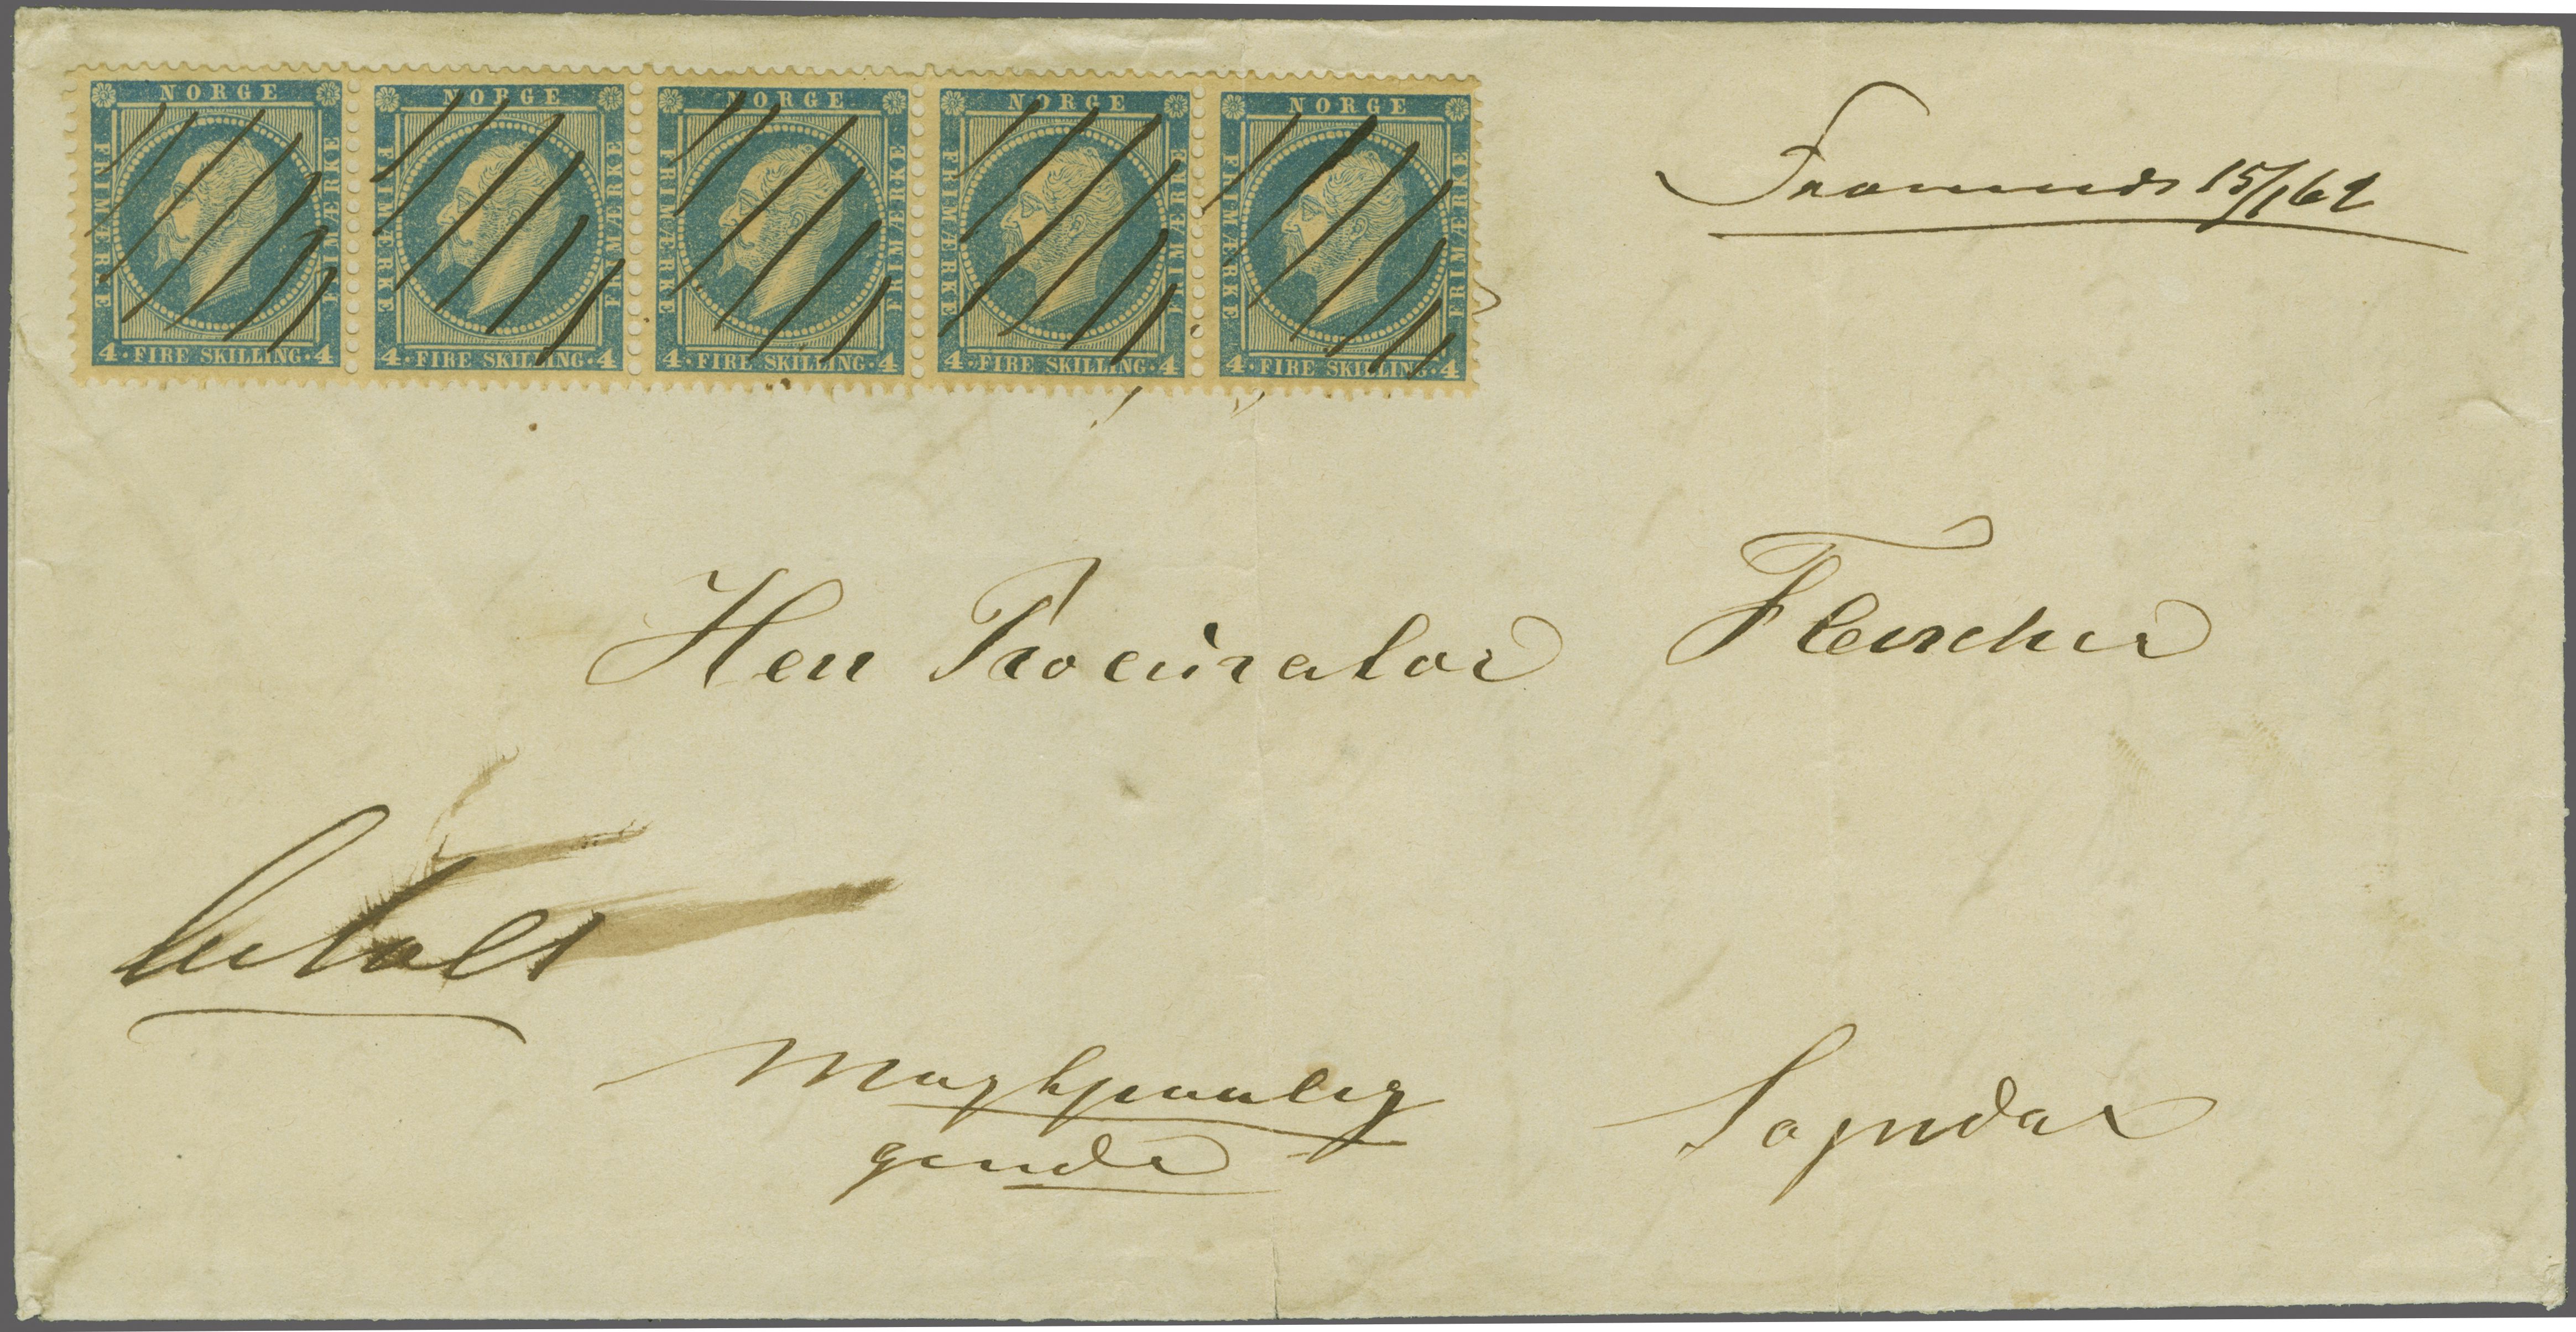 NORGE NORGE NORGE NORGE NORGE
FRIMÆRKE FRIMÆRKE FRIMÆRKE FRIMÆRKE FRIMÆRKE FRIMÆRKE FRIMÆRKE FRIMÆRKE FRIMÆRKE FRIMÆRKE
4·FIRE SKILLING·4 4·FIRE SKILLING·4 4·FIRE SKILLING·4 4·FIRE SKILLING·4 4·FIRE SKILLING·4
15/1 62
Herr Procurator Fleischer
betalt
Sogndal